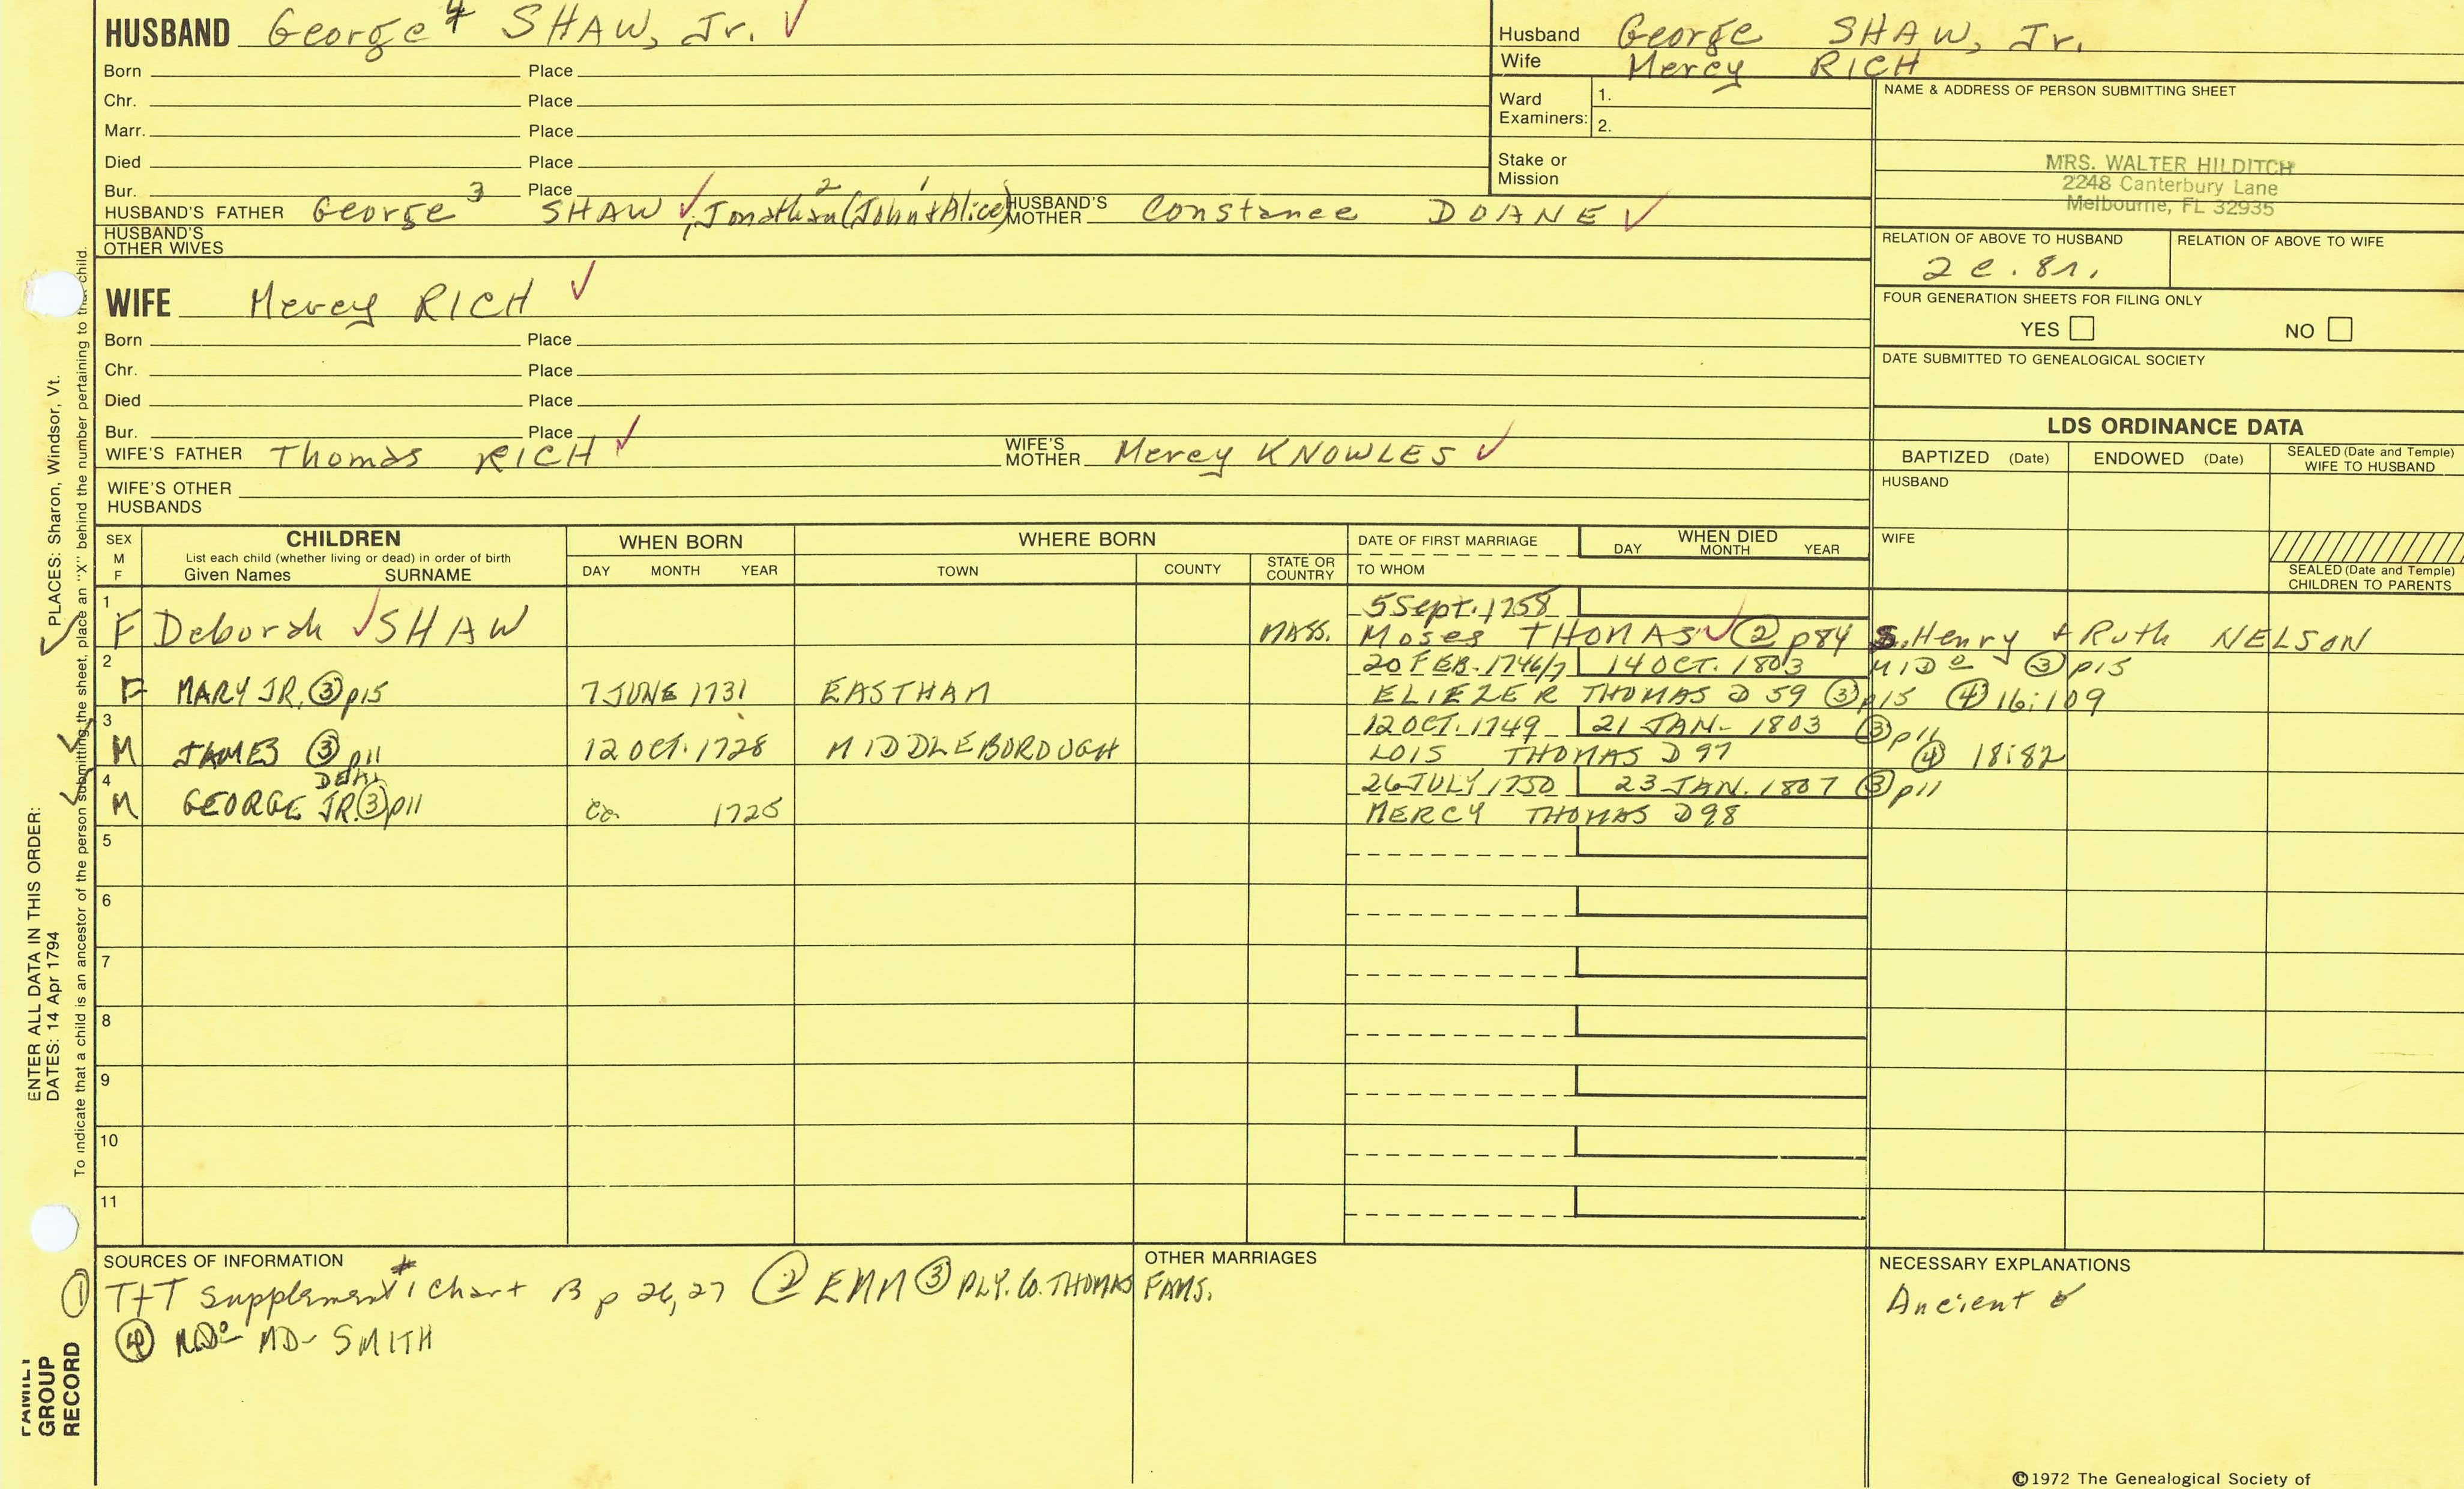 HUSBAND George 4 SHAW, Jr. ✓
Born Place
Chr. Place
Marr. Place
Died Place
Bur. Place
HUSBAND'S FATHER George 3 SHAW ✓, Jonathan 2 (John 1 + Alice) HUSBAND'S MOTHER Constance DOANE ✓
HUSBAND'S OTHER WIVES
WIFE Mercy RICH ✓
Born Place
Chr. Place
Died Place
Bur. Place
WIFE'S FATHER Thomas RICH ✓ WIFE'S MOTHER Mercy KNOWLES ✓
WIFE'S OTHER HUSBANDS
Husband George SHAW, Jr.
Wife Mercy RICH
Ward Examiners: 1.
2.
Stake or Mission
NAME & ADDRESS OF PERSON SUBMITTING SHEET
MRS. WALTER HILDITCH
2248 Canterbury Lane
Melbourne, FL 32935
RELATION OF ABOVE TO HUSBAND RELATION OF ABOVE TO WIFE
2 c. 8r.
FOUR GENERATION SHEETS FOR FILING ONLY
YES NO
DATE SUBMITTED TO GENEALOGICAL SOCIETY
LDS ORDINANCE DATA
BAPTIZED (Date) ENDOWED (Date) SEALED (Date and Temple) WIFE TO HUSBAND
HUSBAND
WIFE
SEALED (Date and Temple) CHILDREN TO PARENTS
SEX M F
CHILDREN
List each child (whether living or dead) in order of birth
Given Names SURNAME
WHEN BORN
DAY MONTH YEAR
WHERE BORN
TOWN COUNTY STATE OR COUNTRY
DATE OF FIRST MARRIAGE
TO WHOM
WHEN DIED
DAY MONTH YEAR
1 5 Sept. 1758
F Deborah ✓ SHAW MASS. Moses THOMAS ✓ ② p84 S. Henry + Ruth NELSON
2 20 FEB. 1746/7 14 OCT. 1803 MIDº ③ p15
F MARY JR. ③ p15 7 JUNE 1731 EASTHAM ELIEZER THOMAS D 59 ③ p15 ④ 16:109
3 12 OCT. 1749 21 JAN. 1803 ③ p11
M JAMES ③ p11 12 OCT. 1728 MIDDLEBOROUGH LOIS THOMAS D 97 ④ 18:82
4 26 JULY 1750 23 JAN. 1807 ③ p11
M GEORGE JR. ③ p11 ca 1725 MERCY THOMAS D98
5
6
7
8
9
10
11
SOURCES OF INFORMATION
① T+T Supplement #1 Chart B p 26, 27 ② EMM ③ PLY. Co. THOMAS FAMS.
④ MDº MD- SMITH
OTHER MARRIAGES
NECESSARY EXPLANATIONS
Ancient
©1972 The Genealogical Society of
PLACES: Sharon, Windsor, Vt.
ENTER ALL DATA IN THIS ORDER:
DATES: 14 Apr 1794
To indicate that a child is an ancestor of the person submitting the sheet, place an "X" behind the number pertaining to that child.
FAMILY GROUP RECORD